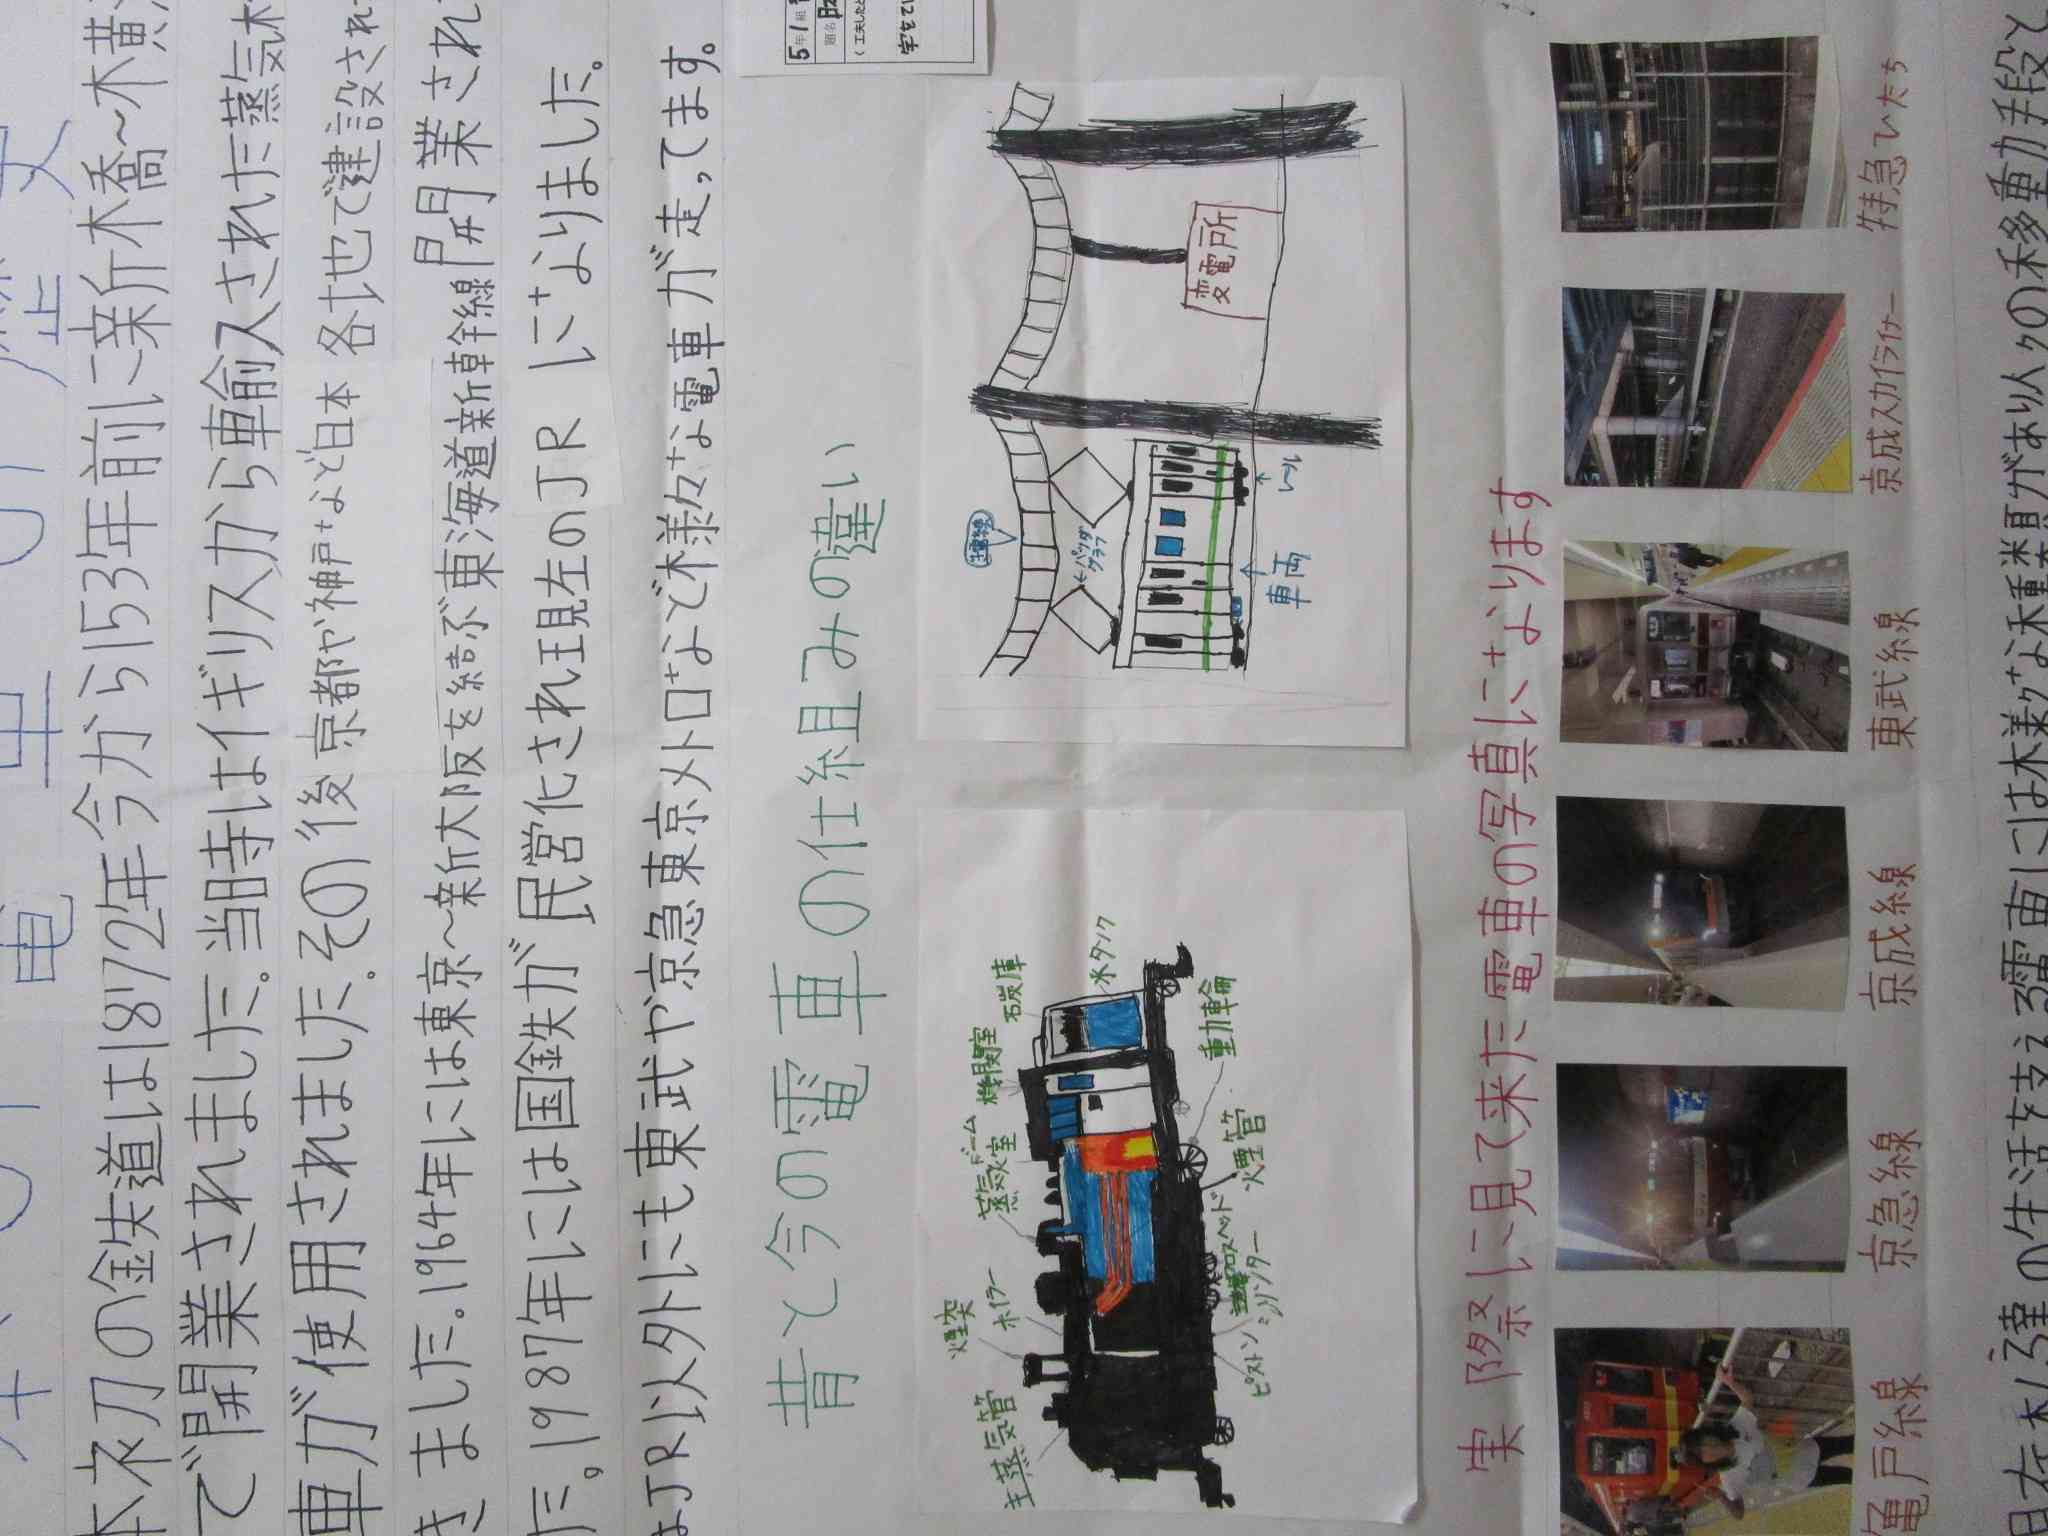 電車の歴史
本初の鉄道は1872年今から153年前に新橋〜横
で開業されました。当時はイギリスから輸入された蒸気
車が使用されました。その後京都や神戸など日本各地で建設され
きました。1964年には東京〜新大阪を結ぶ東海道新幹線開業され
た。1987年には国鉄が民営化され現在のJRになりました。
はJR以外にも東武や京急東京メトロなど様々な電車が走ってます。
5年1組
題名
(工夫したと
字をてい
昔と今の電車の仕組みの違い
主蒸気管
煙突
ボイラー
蒸気ドーム
機関室
石炭庫
水タンク
動輪
火煙管
クロスヘッド
シリンダー
ピストン
パンタグラフ
車両
レール
変電所
実際に見て来た電車の写真になります
亀戸線
京急線
京成線
東武線
京成スカイライナー
特急ひたち
現在私達の生活を支える電車には様々な種類があり人々の移動手段と